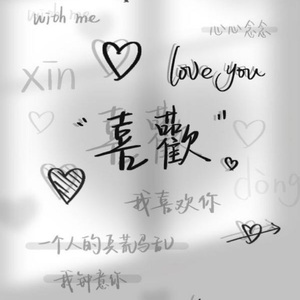 with me
心心念念
xīn
love you
"喜歡"
dòng
我喜欢你
一个人的兵荒马乱
我钟意你